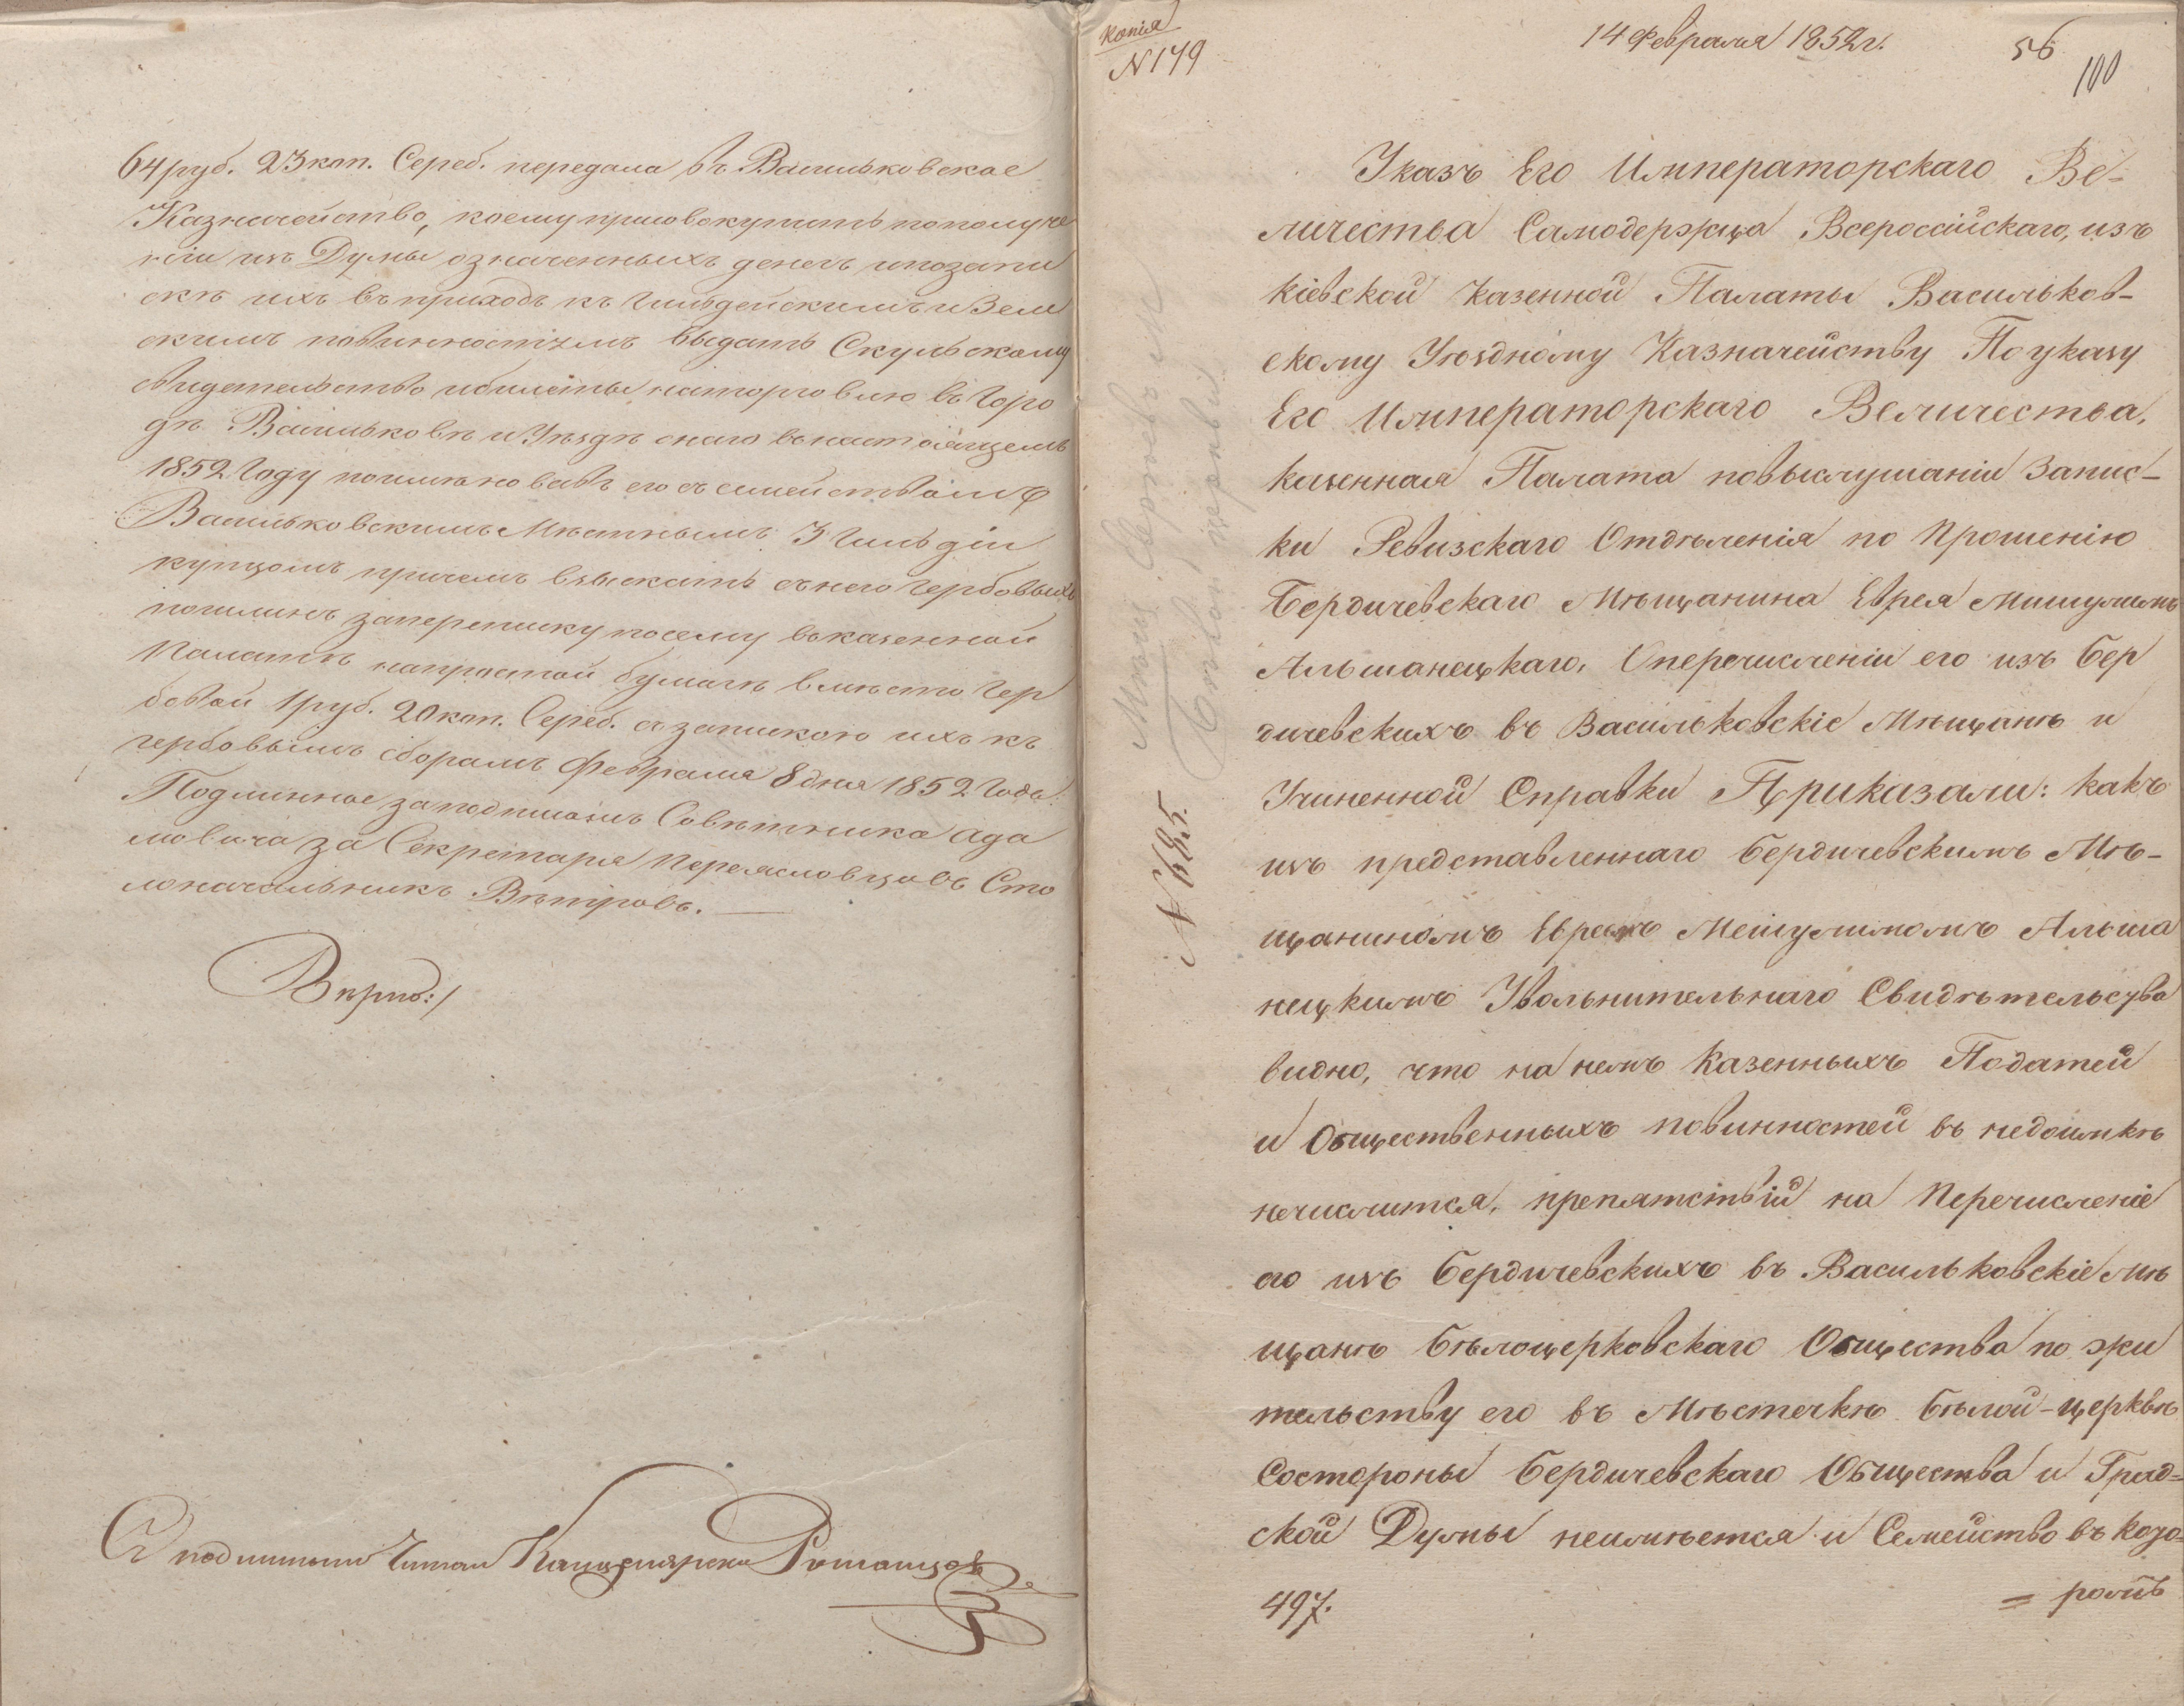 64 руб. 23 коп. Сереб. передала въ Васильковское
Казначейство, коему присовокупить пополуче
ніи изъ Думы означенныхъ денегъ ипозапи
скѣ ихъ въ приходъ къ Гильдейскимъ и Зем
скимъ повинностямъ выдать Скульскому
свидетельство ибилеты наторговлю въ Горо
дѣ Васильковѣ и Уѣздѣ онаго внастоящемъ
1852 Году поименовавъ его съ семействомъ
Васильковскимъ Мѣстнымъ 3 Гильдіи
купцомъ причемъ взыскать снего Гербовыхъ
пошлинъ заперепискупосему вказенной
Палатѣ напростой бумагѣ вмѣсто Гер
бовой 1 руб. 20 коп. Сереб. съ запискою ихъ къ
гербовымъ сборамъ Февраля 8 дня 1852 Года.
Подлинное заподписомъ Совѣтника Ада
мовича за Секретаря Переясловцовъ Сто
лоначальникъ Вѣтровъ.
Вѣрно:/
Съ подлиннымъ Читал Канцелярски
Копія
N 179
14 Февраля 1852 г.
56
100
N 685.
Указъ Его Императорскаго Ве-
личества Самодержца Всероссійскаго, изъ
Кіевской Казенной Палаты Васильков-
скому Уѣздному Казначейству По указу
Его Императорскаго Величества,
казенная Палата повыслушаніи Запис-
ки Ревизскаго Отдѣленія по Прошенію
Бердичевскаго Мѣщанина Еврея Мишулимъ
Альшанецкаго, Оперечисленіи его изъ Бер
дичевскихъ въ Васильковскіе Мѣщанѣ и
Учиненной Справки Приказали: какъ
изъ представленнаго Бердичевскимъ Мѣ-
щаниномъ Евреемъ Мешулимомъ Альша
нецкимъ Увольнительнаго Свидѣтельсува
видно, что на немъ Казенныхъ Податей
и Общественныхъ повинностей въ недоимкѣ
нечислится, препятствій на Перечисленіе
его изъ Бердичевскихъ въ Васильковскіе Мѣ
щанѣ Бѣлоцерковскаго Общества по жи
тельству его въ Мѣстечкѣ Бѣлой-Церквѣ
Состороны Бердичевскаго Общества и Град=
ской Думы неимѣется и Семейство въ кото=
497.
= ромъ